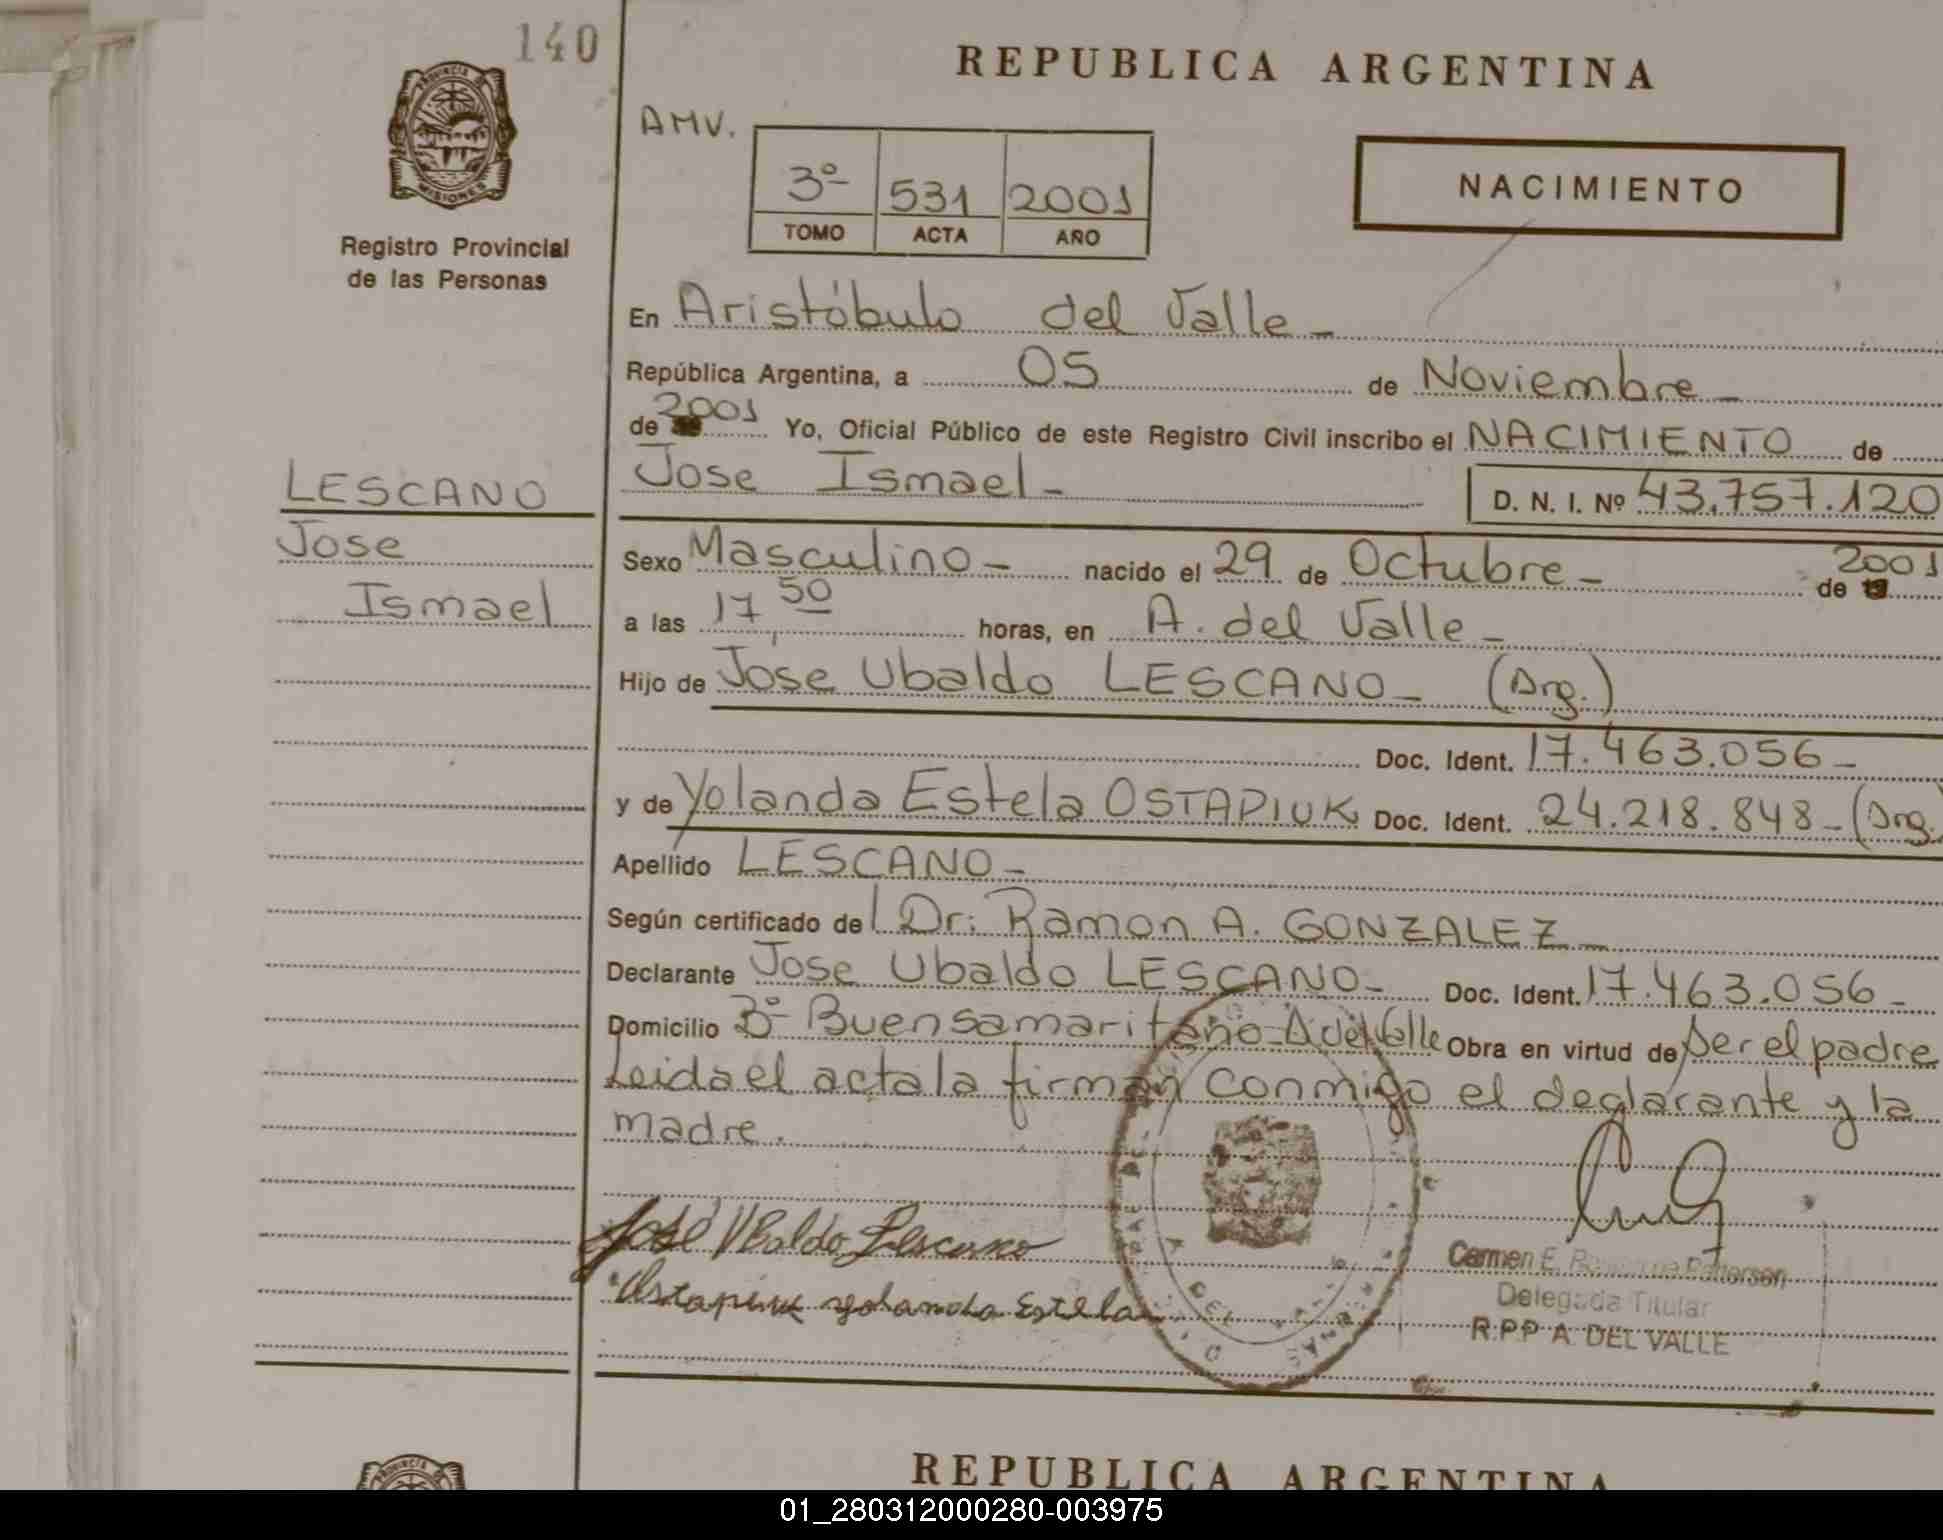 140
REPUBLICA ARGENTINA
PROVINCIA DE
MISIONES
Registro Provincial
de las Personas
AMV.
3º 531 2001
TOMO ACTA AÑO
NACIMIENTO
En Aristóbulo del Valle -
República Argentina, a 05 de Noviembre -
de 2001 Yo, Oficial Público de este Registro Civil inscribo el NACIMIENTO de
Jose Ismael - D. N. I. Nº 43.757.120
LESCANO
Jose
Ismael
Sexo Masculino - nacido el 29 de Octubre - de 2001
a las 17 50 horas, en A. del Valle -
Hijo de Jose Ubaldo LESCANO - (Arg.)
Doc. Ident. 17.463.056 -
y de Yolanda Estela OSTAPIUK Doc. Ident. 24.218.848 - (Arg.
Apellido LESCANO -
Según certificado del Dr: Ramon A. GONZALEZ -
Declarante Jose Ubaldo LESCANO - Doc. Ident. 17.463.056 -
Domicilio Bº Buen samaritano - A del Valle Obra en virtud de Ser el padre
Leida el acta la firman conmigo el declarante y la
madre.
José Ubaldo Lescano
Ostapiuk yolanda Estela
Carmen E. Patterson
Delegada Titular
R.P.P A. DEL VALLE
REPUBLICA ARGENTINA
PROVINCIA DE
01_280312000280-003975